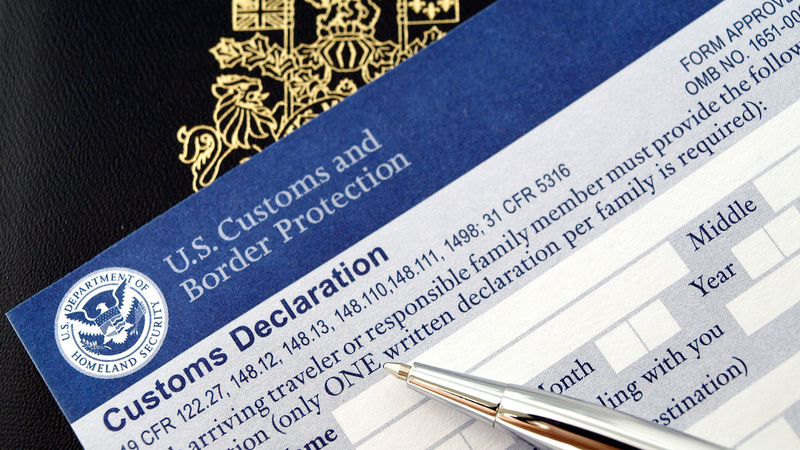 U.S. Customs and
Border Protection
FORM APPROVED
OMB NO. 1651-00
U.S. DEPARTMENT OF
HOMELAND SECURITY
Customs Declaration
19 CFR 122.27, 148.12, 148.13, 148.110,148.111, 1498; 31 CFR 5316
arriving traveler or responsible family member must provide the follow
tion (only ONE written declaration per family is required):
Middle
Month
Year
ling with you
stination)